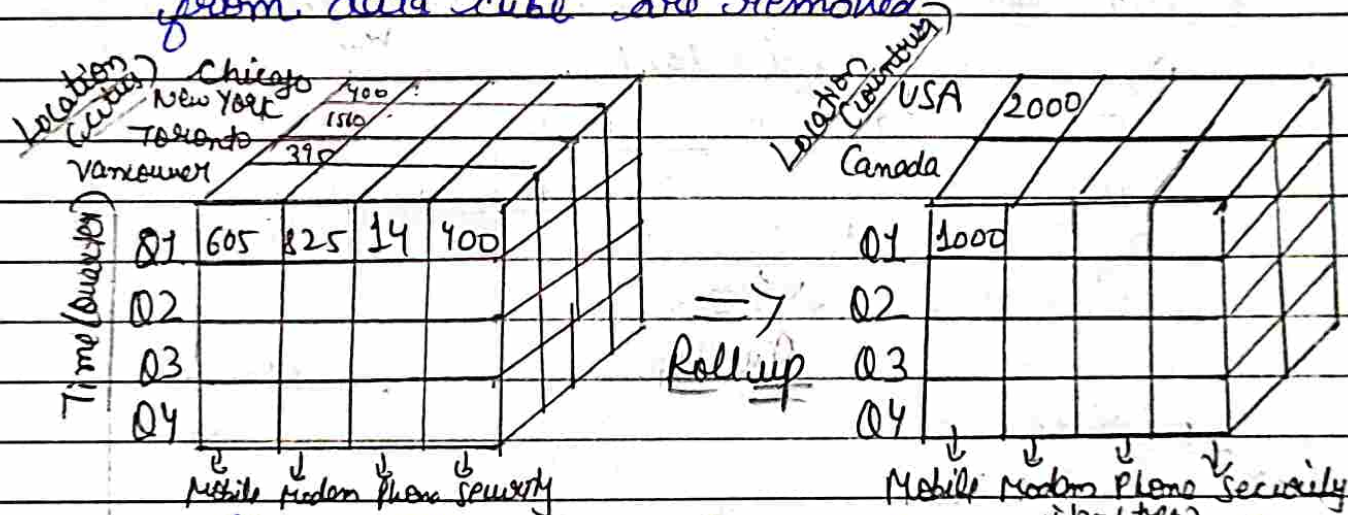 from data cube are removed
Location (cities)
Chicago
New York
Toronto
Vancouver
400
1560
390
Time (Quarter)
Q1 605 825 14 400
Q2
Q3
Q4
Mobile Modem Phone Security
=>
Roll up
Location (Countries)
USA 2000
Canada
Q1 1000
Q2
Q3
Q4
Mobile Modem Phone Security